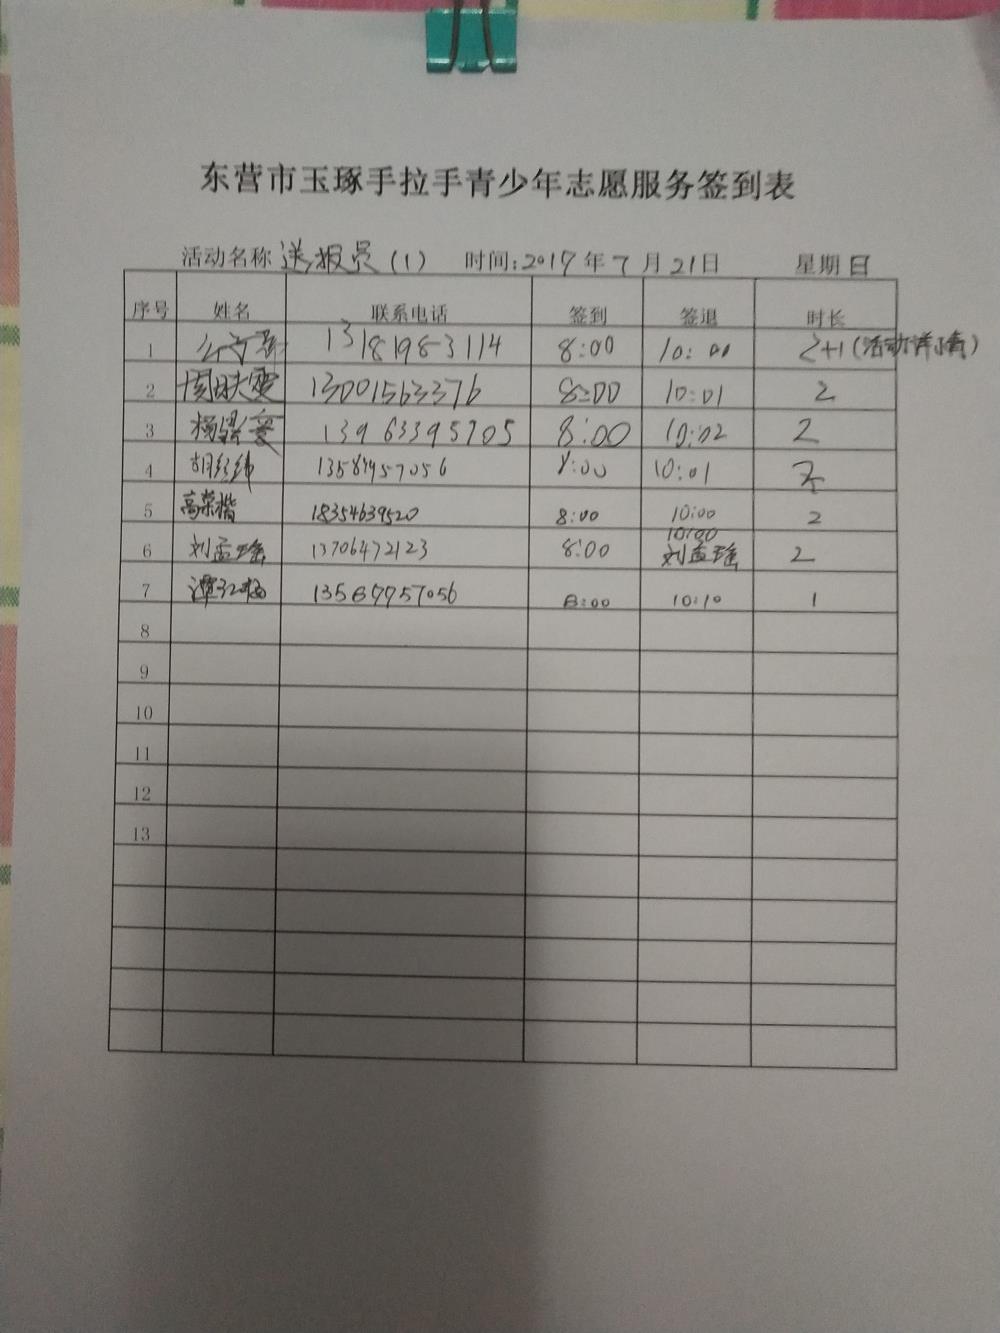 东营市玉琢手拉手青少年志愿服务签到表
活动名称 送报员（1） 时间：2017年7月21日 星期日
序号 姓名 联系电话 签到 签退 时长
1 13181983114 8:00 10:00 2+1（活动详情）
2 13001563376 8:00 10:01 2
3 13963395705 8:00 10:02 2
4 胡经纬 8:00 10:01 2
5 高荣楷 18354639520 8:00 10:00 2
6 刘孟瑶 13706472123 8:00 10:00 刘孟瑶 2
7 谭红梅 8:00 10:10 1
8
9
10
11
12
13